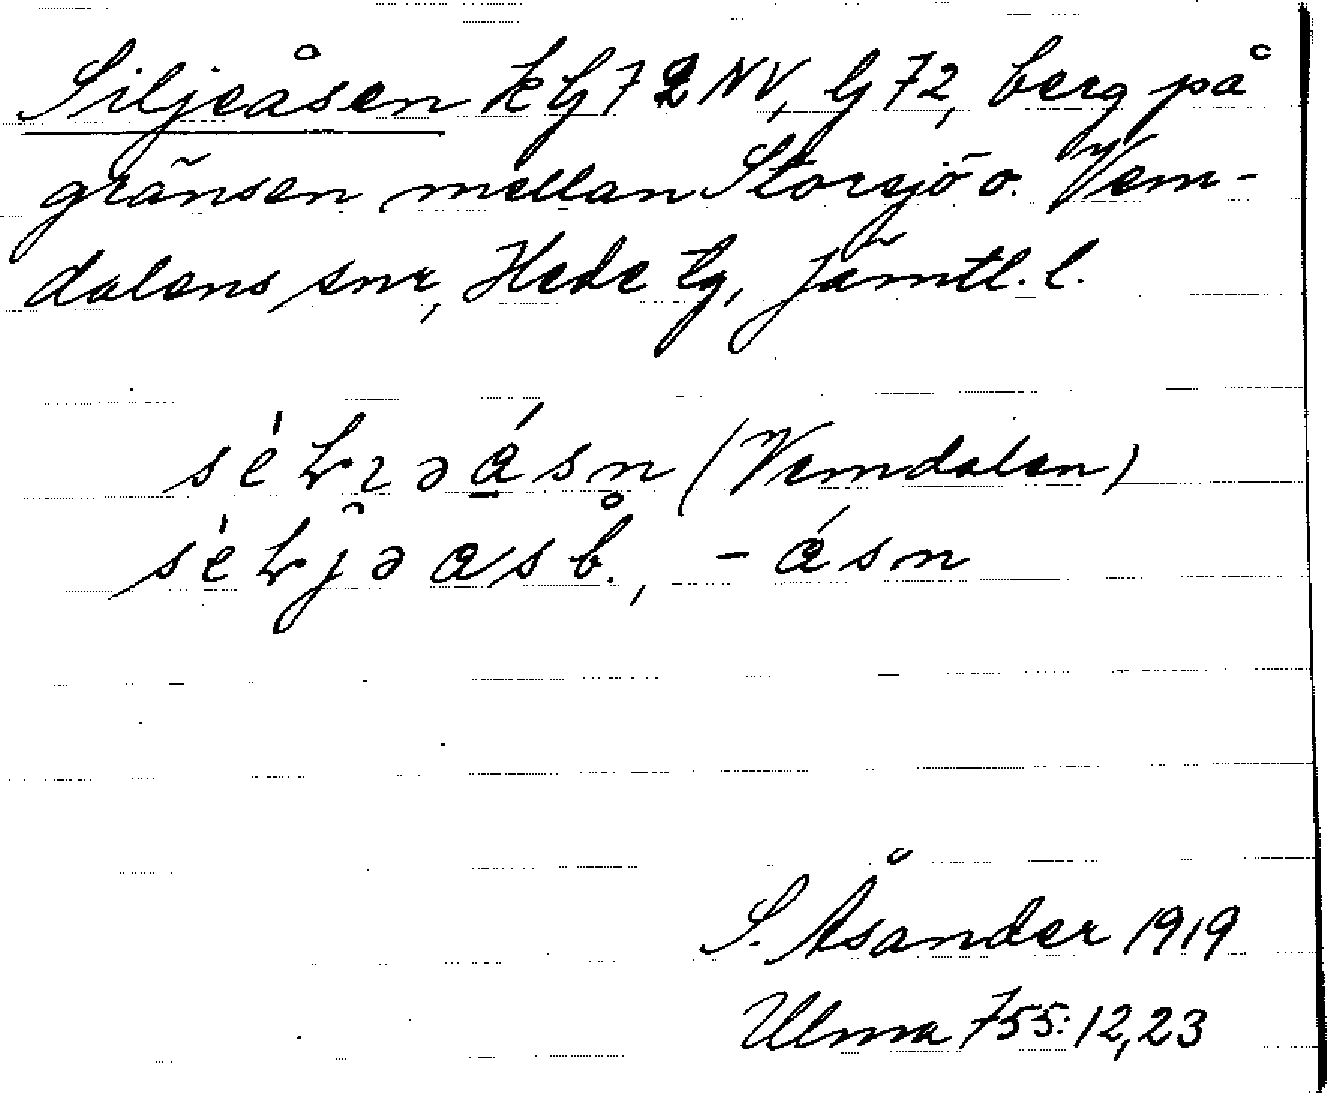 Siljeåsen kG72NV, G72, berg på
gränsen mellan Storsjö o. Vem-
dalens snr, Hede tg, Jämtl. l.
(Vemdalen)
S. Åsander 1919
Ulma 755:12,23